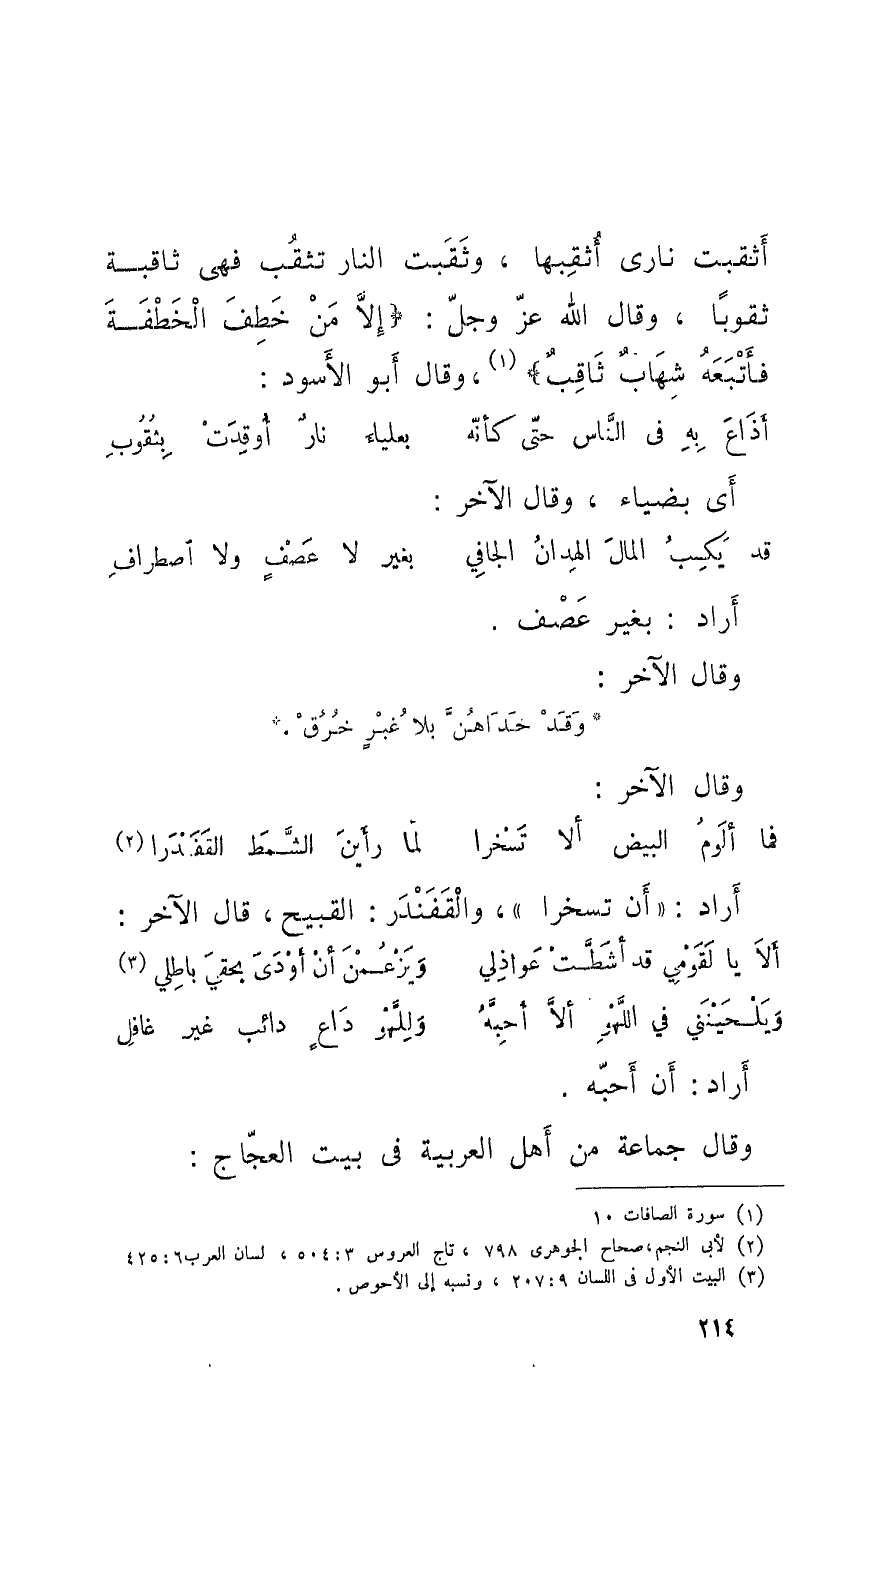 أَثقبت نارى أُثقِبها ، وثَقَبت النار تثقُب فهى ثاقبة
ثقوبًا ، وقال الله عزّ وجلّ : ﴿إِلاَّ مَنْ خَطِفَ الْخَطْفَةَ
فأَتْبَعَهُ شِهَابٌ ثَاقِبٌ﴾ (١)، وقال أَبو الأَسود :
أَذَاعَ بِهِ فى النَّاس حتّى كأنّه بعلياء نارٌ أُوقِدَتْ بِثُقُوبِ
أَى بضياء ، وقال الآخر :
قد يَكسِبُ المالَ الهِدانُ الجافِي بغير لا عَصْفٍ ولا آصطرافِ
أَراد : بغير عَصْف .
وقال الآخر :
* وَقَدْ حَدَاهُنَّ بلا غُبْرٍ خُرُقْ .*
وقال الآخر :
فما ألَومُ البيض ألا تَسْخرا لمّا رأَينَ الشَّمَط القَفَنْدَرا (٢)
أَراد : «أَن تسخرا » ، والْقَفَنْدَر : القبيح ، قال الآخر :
ألاَ يا لَقَوْمِي قد أشَطَّتْ عَواذِلي وَيَزْعُمْنَ أنْ أوْدَىَ بحقيَ باطِلي (٣)
وَيَلْحَيْنَني في اللَّهْوِ ألاَّ أحِبَّهُ وَلِلَّهْوِ دَاعٍ دائب غير غافلِ
أَراد : أَن أَحبّه .
وقال جماعة من أَهل العربية فى بيت العجّاج :
(١) سورة الصافات ١٠
(٢) لأبى النجم،صحاح الجوهرى ٧٩٨ ، تاج العروس ٥٠٤:٣ ، لسان العرب٤٢٥:٦
(٣) البيت الأول فى اللسان ٢٠٧:٩ ، ونسبه إلى الأحوص .
٢١٤